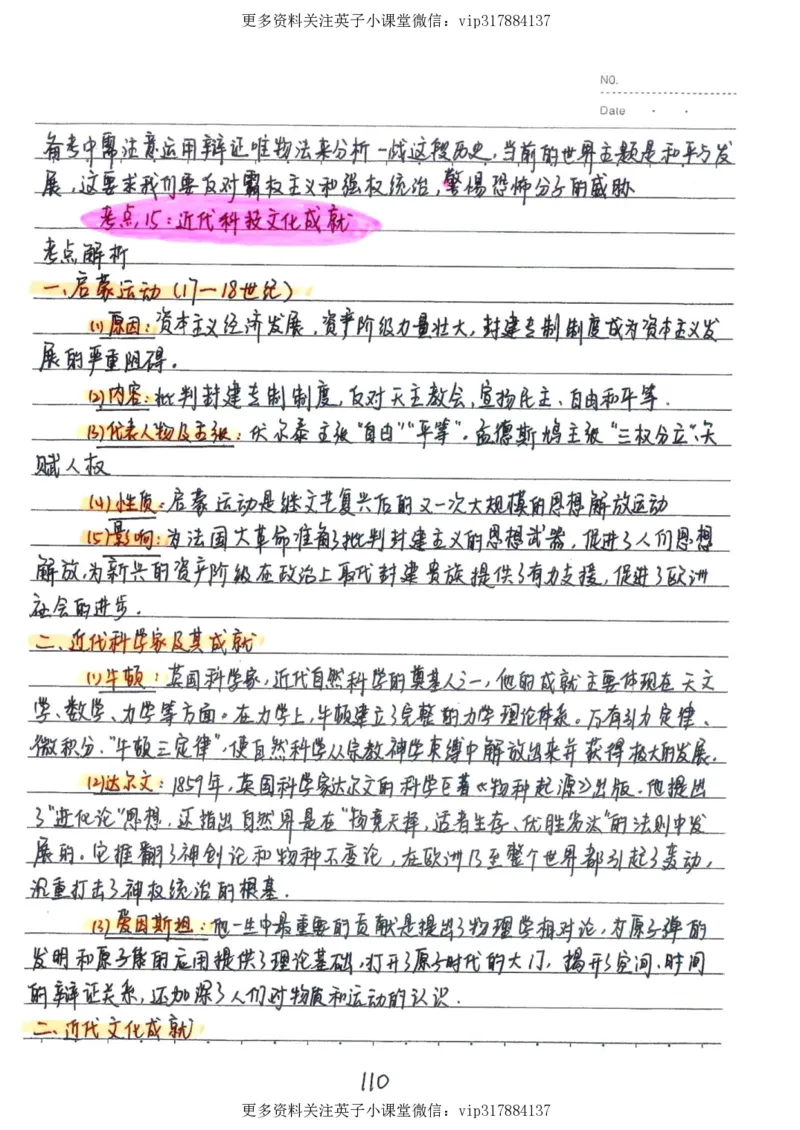 更多资料关注英子小课堂微信：vip317884137
NO.
Date
备考中需注意运用辩证唯物法来分析一战这段历史，当前的世界主题是和平与发
展，这要求我们要反对霸权主义和强权统治，警惕恐怖分子的威胁
考点15：近代科技文化成就
考点解析
一、启蒙运动（17—18世纪）
(1)原因：资本主义经济发展，资产阶级力量壮大，封建专制制度成为资本主义发
展的严重阻碍。
(2)内容：批判封建专制制度，反对天主教会，宣扬民主、自由和平等．
(3)代表人物及主张：伏尔泰主张“自由”“平等”。孟德斯鸠主张“三权分立”、天
赋人权
(4)性质：启蒙运动是继文艺复兴后的又一次大规模的思想解放运动
(5)影响：为法国大革命准备了批判封建主义的思想武器，促进了人们思想
解放，为新兴的资产阶级在政治上取代封建贵族提供了有力支援，促进了欧洲
社会的进步．
二、近代科学家及其成就
(1)牛顿：英国科学家，近代自然科学的奠基人之一，他的成就主要体现在天文
学、数学、力学等方面。在力学上，牛顿建立了完整的力学理论体系。万有引力定律、
微积分、“牛顿三定律”，使自然科学从宗教神学束缚中解放出来并获得极大的发展．
(2)达尔文：1859年，英国科学家达尔文的科学巨著《物种起源》出版．他提出
了“进化论”思想，还指出自然界是在“物竞天择，适者生存、优胜劣汰”的法则中发
展的。它推翻了神创论和物种不变论，在欧洲乃至整个世界都引起了轰动，
沉重打击了神权统治的根基．
(3)爱因斯坦：他一生中最重要的贡献是提出了物理学相对论，为原子弹的
发明和原子能的应用提供了理论基础，打开了原子时代的大门，揭开了空间、时间
的辩证关系，还加深了人们对物质和运动的认识．
二、近代文化成就
110
更多资料关注英子小课堂微信：vip317884137